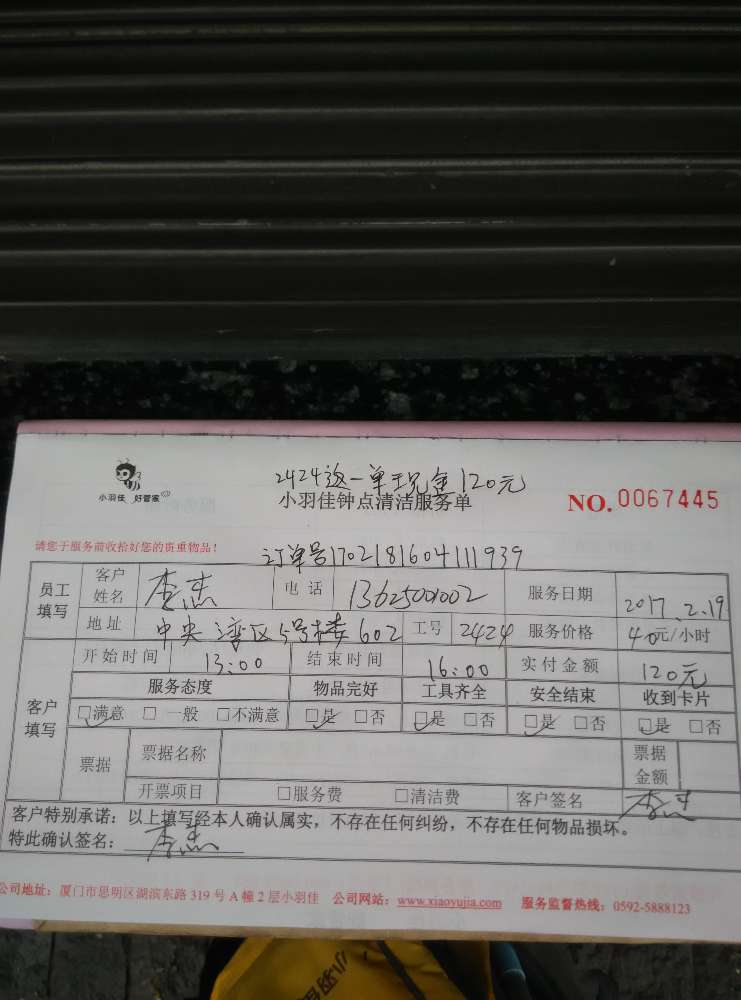 2424这一单现金120元
小羽佳 好管家
小羽佳钟点清洁服务单
NO. 0067445
请您于服务前收拾好您的贵重物品！
订单号1702181604111939
员工填写 客户姓名 李杰 电话 13625001002 服务日期 2017.2.19
地址 中央湾区5号楼602 工号 2424 服务价格 40元/小时
客户填写 开始时间 13:00 结束时间 16:00 实付金额 120元
服务态度 物品完好 工具齐全 安全结束 收到卡片
□满意 □一般 □不满意 □是 □否 □是 □否 □是 □否 □是 □否
票据 票据名称 票据金额
开票项目 □服务费 □清洁费 客户签名 李杰
客户特别承诺：以上填写经本人确认属实，不存在任何纠纷，不存在任何物品损坏。
特此确认签名： 李杰
公司地址：厦门市思明区湖滨东路 319 号 A 幢 2 层小羽佳 公司网站：www.xiaoyujia.com 服务监督热线：0592-5888123